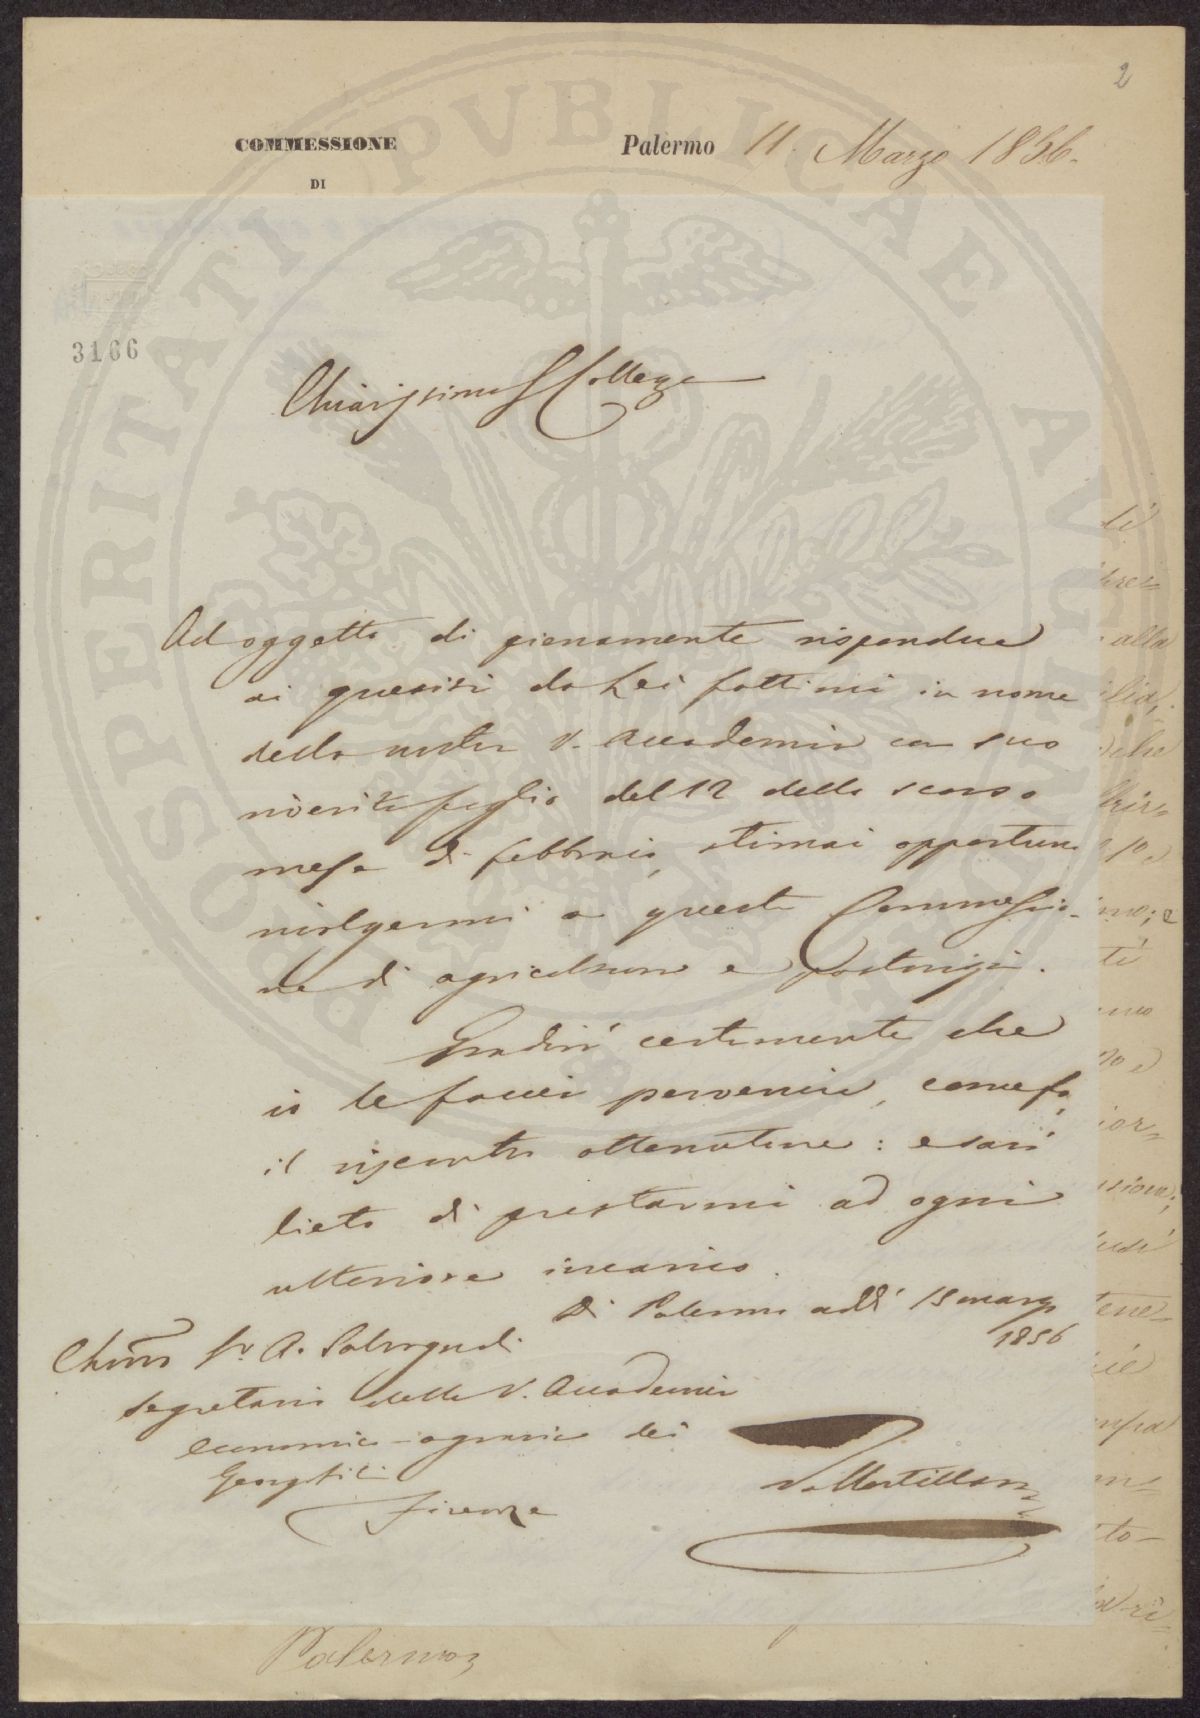 2
COMMESSIONE
DI
Palermo 11. Marzo 1856.
PROSPERITATI PVBLICAE AVGENDAE
3166
Chiarissimo Sr Collega
Ad oggetto di pienamente rispondere
ai quesiti da Lei fattimi in nome
della nostra R. Accademia con suo
riverito foglio del 12 dello scorso
mese di febbraio, stimai opportuno
rivolgermi a questa Commessio-
ne di agricoltura e pastorizia.
Gradirà certamente che
io le facci pervenire, come fo,
il riscontro ottenutone: e sarò
lieto di prestarmi ad ogni
ulteriore incarico.
Di Palermo addì 15 marzo
1856
Chmo Sr. A. Salvagnoli
Segretario della R. Accademia
economico-agraria dei
Georgofili
Firenze
di
alla
che
te
Palermo